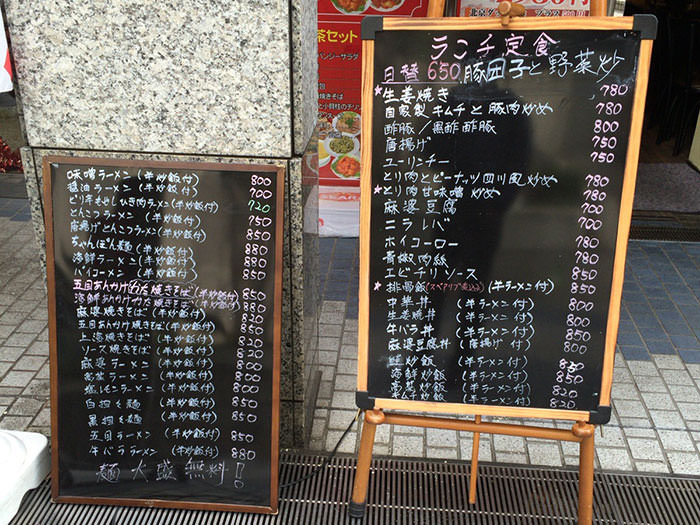 味噌ラーメン (半炒飯付) 800
醤油ラーメン (半炒飯付) 700
ピリ辛もやしひき肉ラーメン 720
とんこつラーメン (半炒飯付) 750
唐揚げとんこつラーメン(半炒飯付) 850
ちゃんぽん麺(半炒飯付) 880
海鮮ラーメン (半炒飯付) 880
パイコーメン (半炒飯付) 880
五目あんかけかた焼きそば(半炒飯付) 850
海鮮あんかけかた焼きそば(半炒飯付) 880
麻婆焼きそば (半炒飯付) 820
五目あんかけ焼きそば(半炒飯付) 850
上海焼きそば (半炒飯付) 820
ソース焼きそば (半炒飯付) 820
麻婆ラーメン (半炒飯付) 800
高菜ラーメン (半炒飯付)
塩レモンラーメン (半炒飯付)
白担々麺 (半炒飯付) 850
黒担々麺
五目ラーメン (半炒飯付) 850
牛バララーメン (半炒飯付) 880
麺大盛無料!
ランチ定食
日替 650 豚団子と野菜炒
★生姜焼き 780
自家製キムチと豚肉炒め 780
酢豚/黒酢酢豚 800
唐揚げ 750
ユーリンチー 750
★とり肉とピーナッツ四川風炒め 780
★とり肉甘味噌炒め 780
麻婆豆腐 700
ニラレバ 700
ホイコーロー 780
青椒肉絲 780
エビチリソース 850
★排骨飯(スペアリブ煮込み) (半ラーメン付) 850
中華丼 (半ラーメン付) 800
生姜焼丼 (半ラーメン付) 800
牛バラ丼 (半ラーメン付) 850
麻婆豆腐丼 (唐揚げ付) 800
(半ラーメン付) 850
海鮮炒飯 (半ラーメン付) 850
高菜炒飯 (半ラーメン付) 820
キムチ炒飯 (半ラーメン付) 820
茶セット